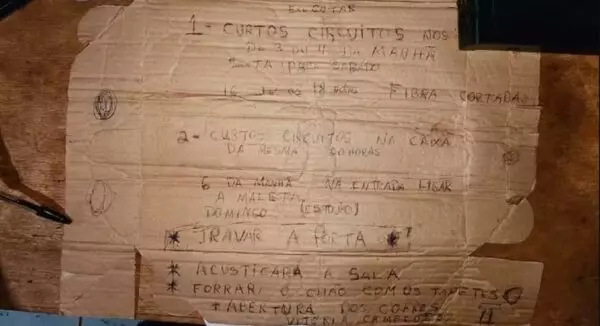 ESCOTAS
1- CURTOS CIRCUITOS NOS
DE 3 OU 4 DA MANHÃ
SEXTA PARA SABADO
16 AS 18 FIBRA CORTADA
2- CURTOS CIRCUITOS NA CAIXA
DA MESMA HORAS
6 DA MANHÃ NA ENTRADA LIGAR
A MALETA
DOMINGO (ESTOJO)
* TRAVAR A PORTA *
* ACUSTICARÁ A SALA
* FORRAR O CHÃO COM OS TAPETES
+ ABERTURA DOS COFRES
VITÓRIA